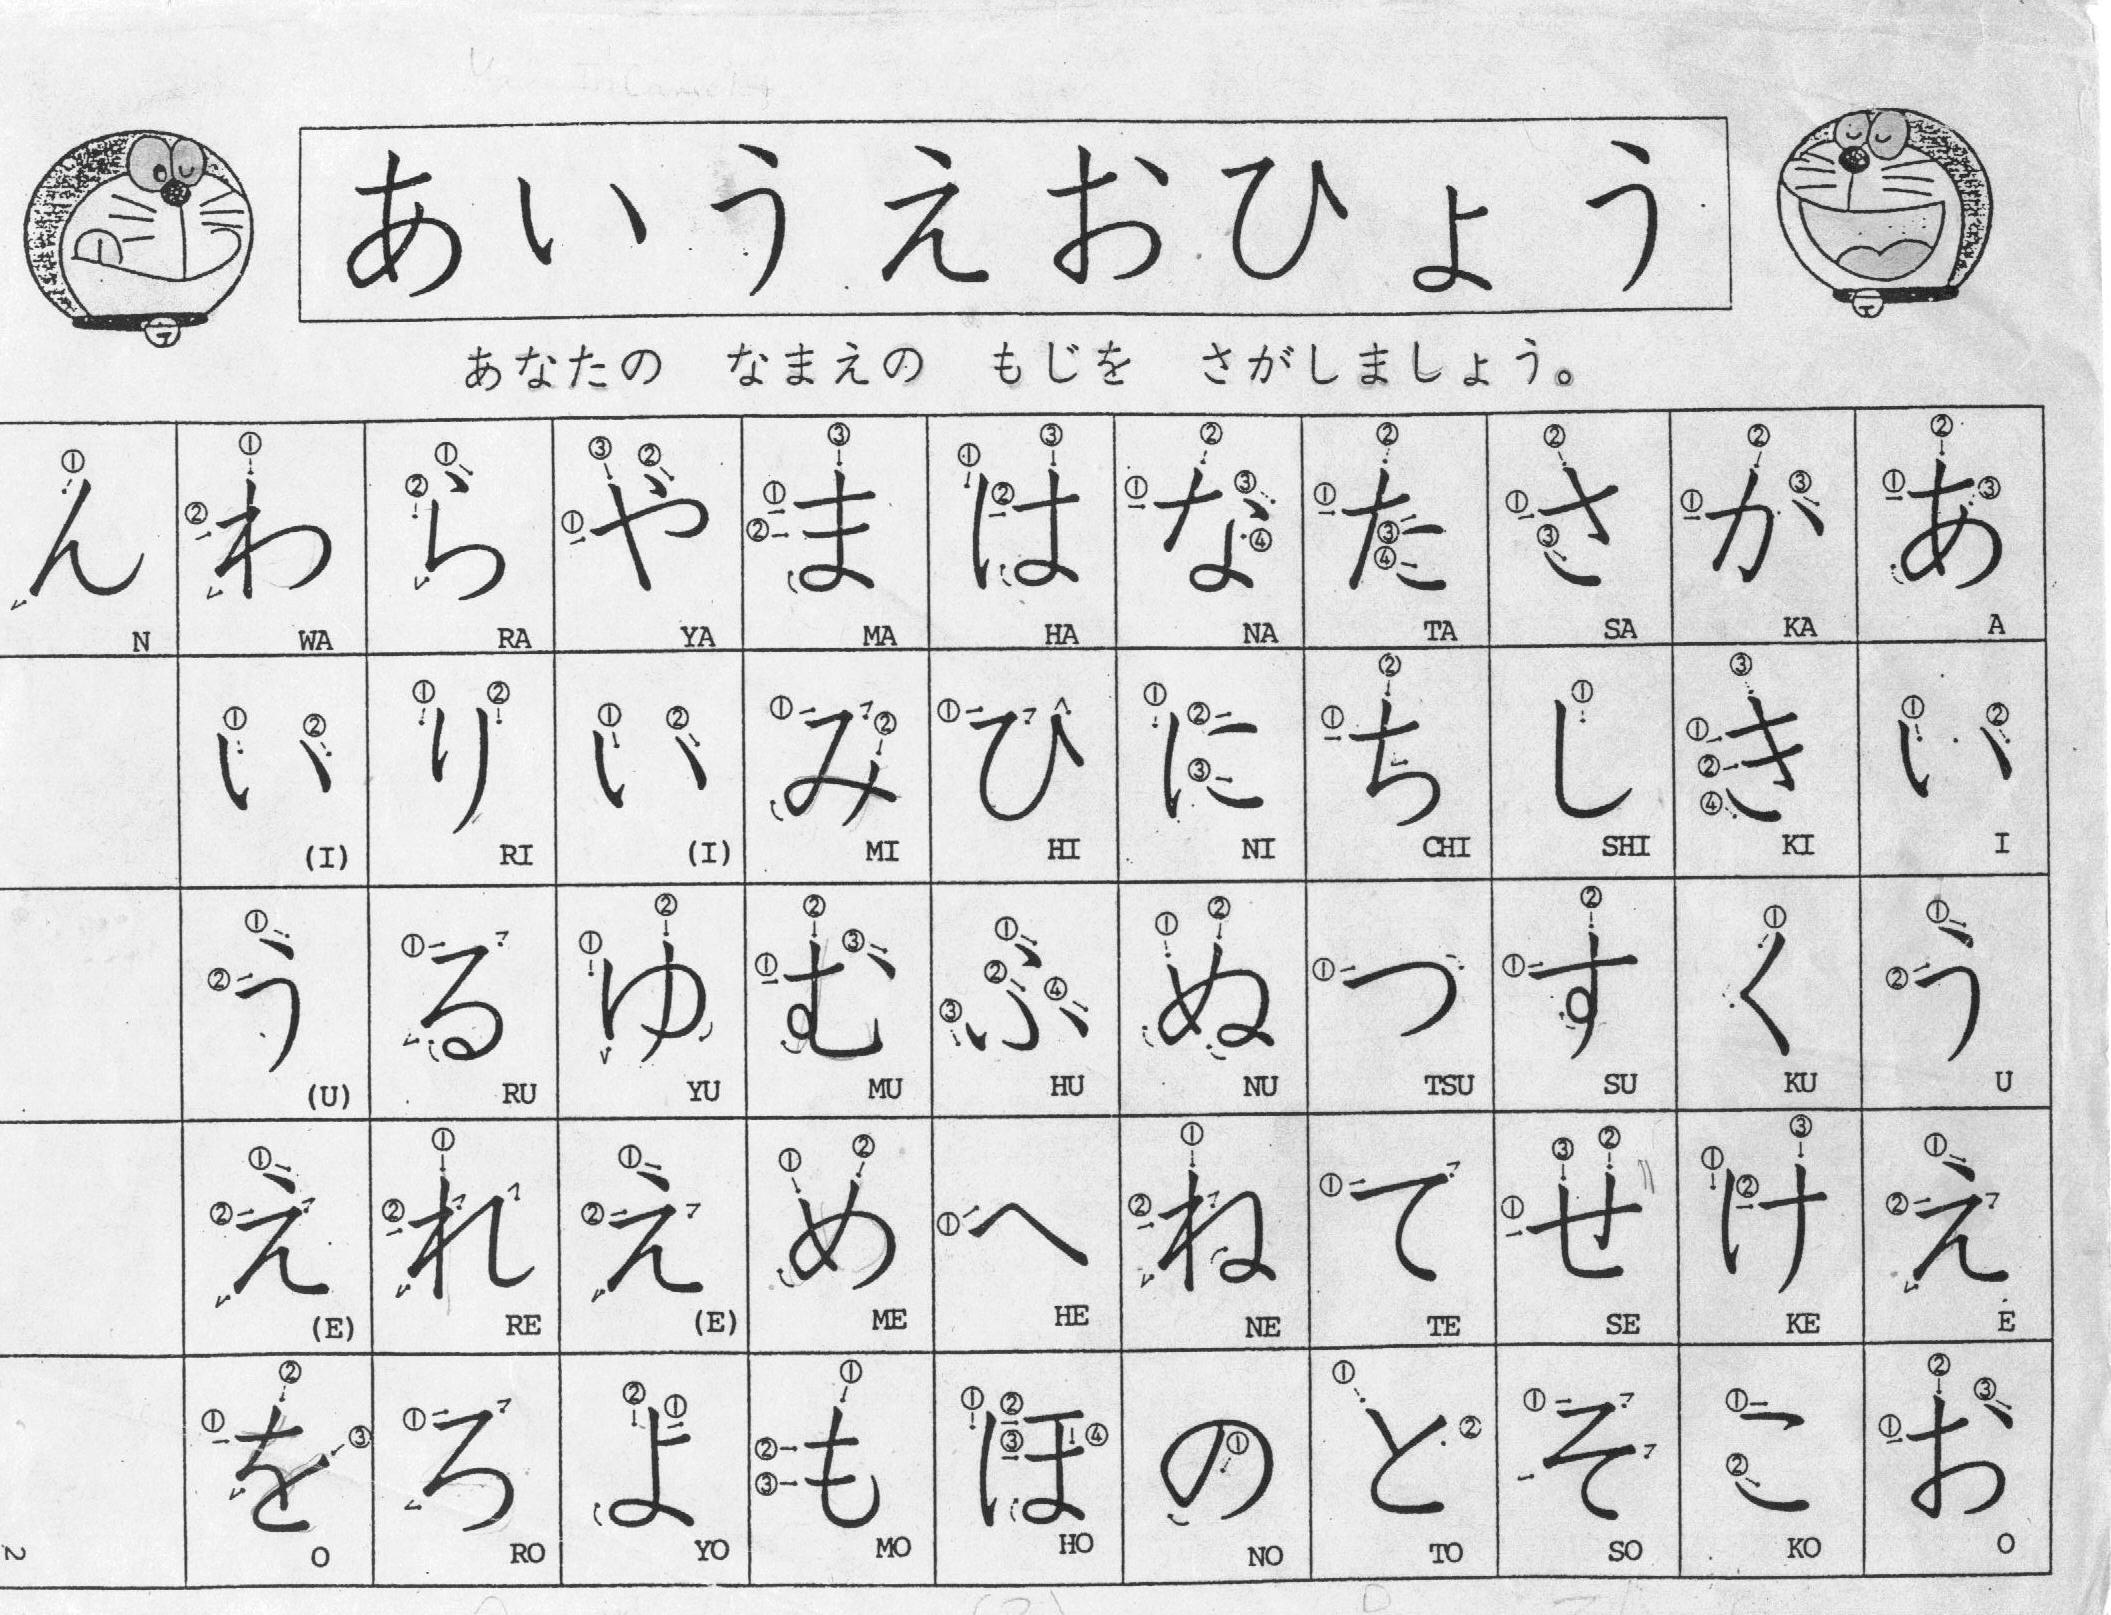 あいうえおひょう
あなたの なまえの もじを さがしましょう。
ん わ ら や ま は な た さ か あ
N WA RA YA MA HA NA TA SA KA A
い り い み ひ に ち し き い
(I) RI (I) MI HI NI CHI SHI KI I
う る ゆ む ふ ぬ つ す く う
(U) RU YU MU HU NU TSU SU KU U
え れ え め へ ね て せ け え
(E) RE (E) ME HE NE TE SE KE E
を ろ よ も ほ の と そ こ お
O RO YO MO HO NO TO SO KO O
2